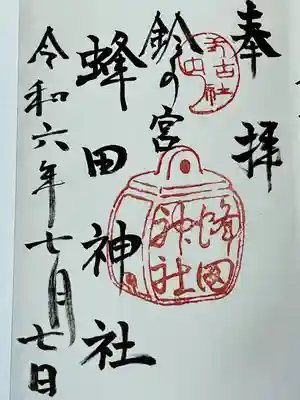 奉拝
鈴の宮
蜂田神社
令和六年七月七日
蜂田
神社